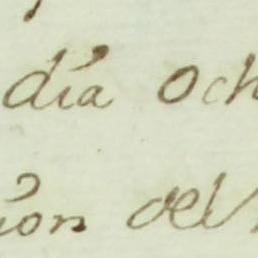 día och
ion del